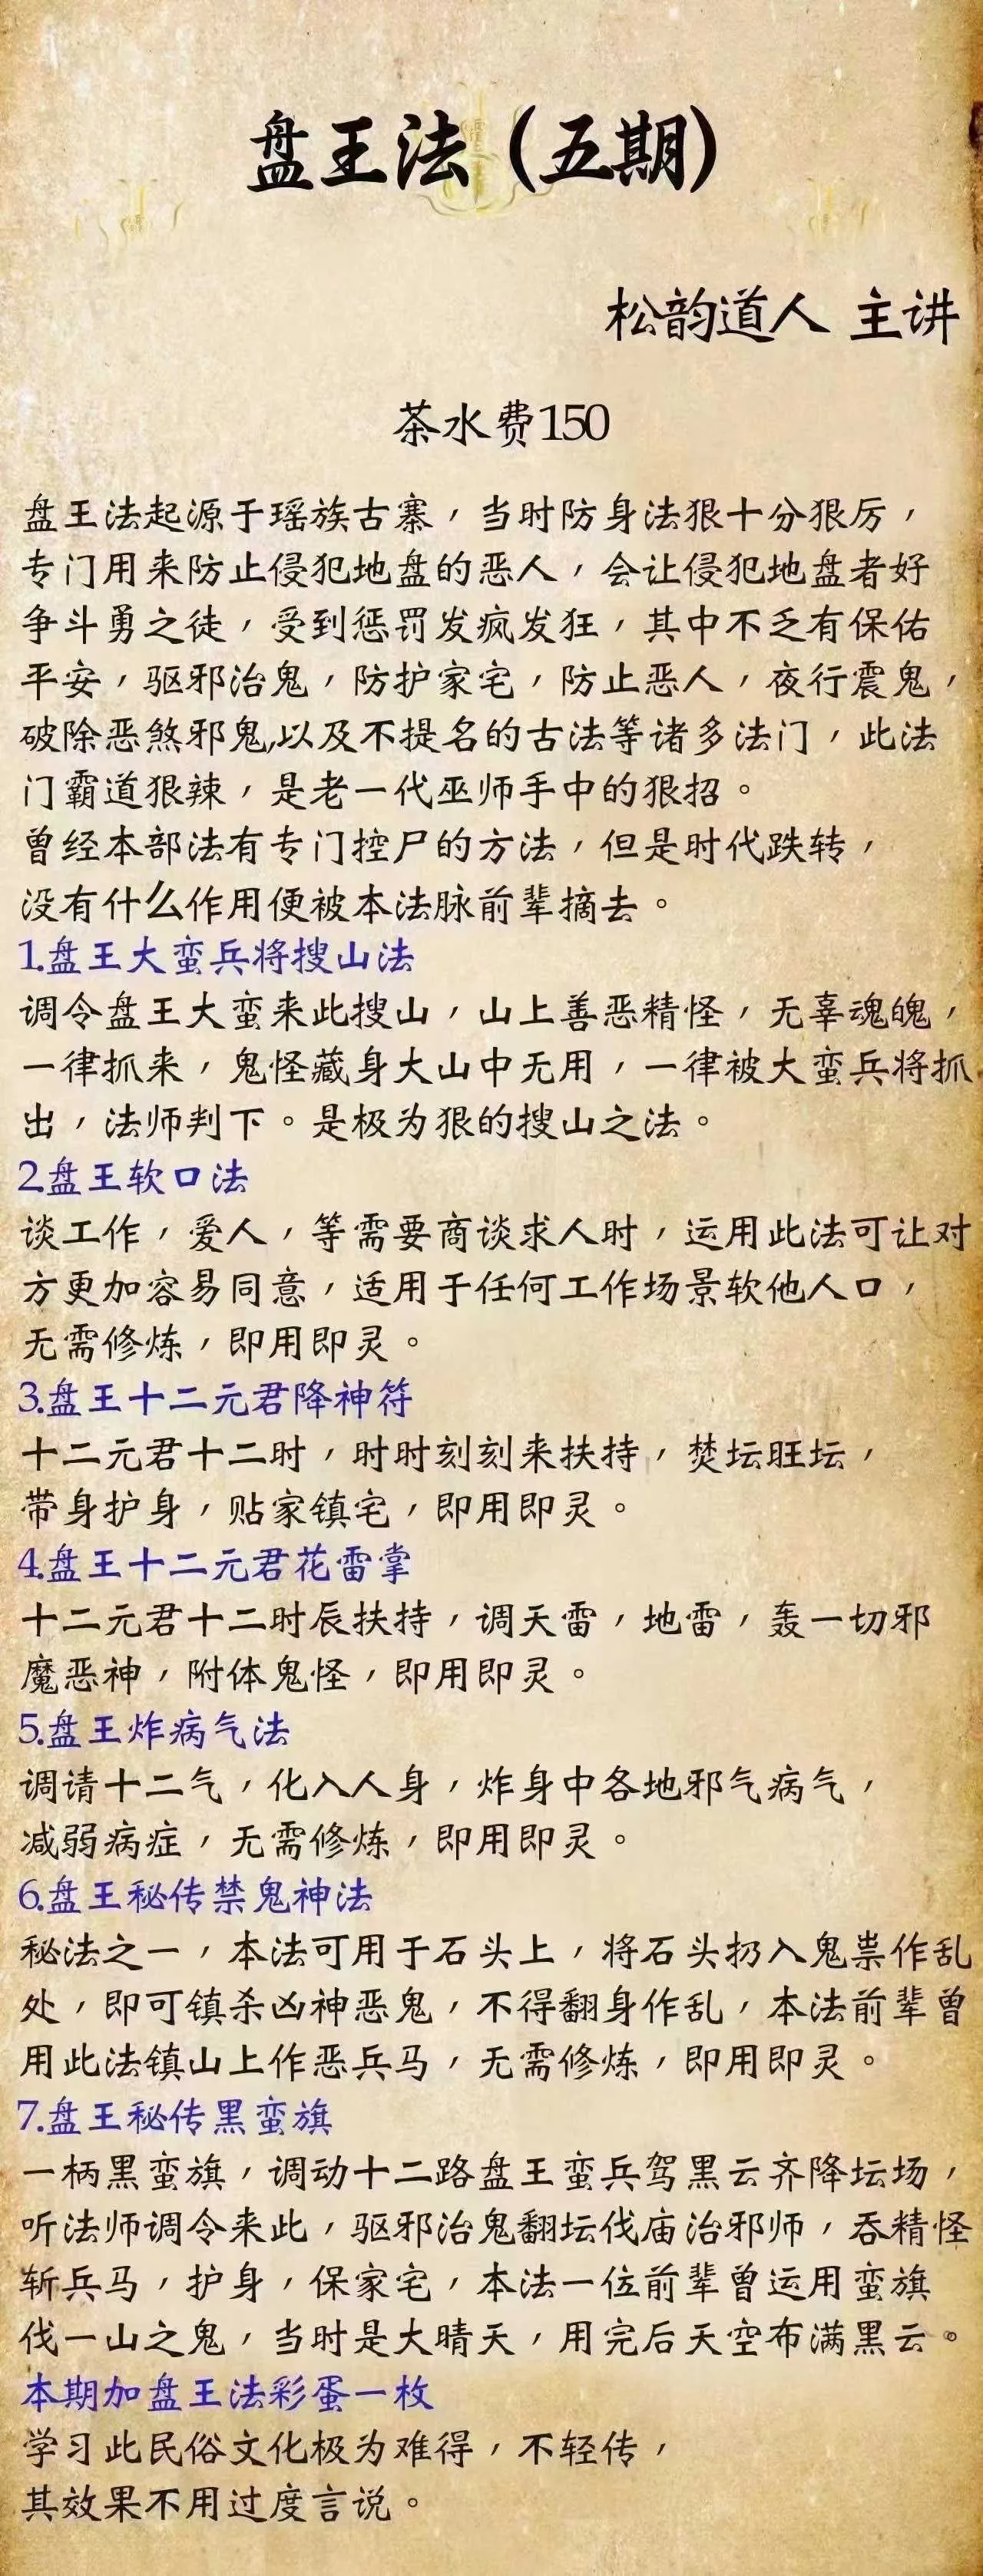 盘王法（五期）
松韵道人 主讲
茶水费150
盘王法起源于瑶族古寨，当时防身法狠十分狠厉，
专门用来防止侵犯地盘的恶人，会让侵犯地盘者好
争斗勇之徒，受到惩罚发疯发狂，其中不乏有保佑
平安，驱邪治鬼，防护家宅，防止恶人，夜行震鬼，
破除恶煞邪鬼,以及不提名的古法等诸多法门，此法
门霸道狠辣，是老一代巫师手中的狠招。
曾经本部法有专门控尸的方法，但是时代跌转，
没有什么作用便被本法脉前辈摘去。
1.盘王大蛮兵将搜山法
调令盘王大蛮来此搜山，山上善恶精怪，无辜魂魄，
一律抓来，鬼怪藏身大山中无用，一律被大蛮兵将抓
出，法师判下。是极为狠的搜山之法。
2.盘王软口法
谈工作，爱人，等需要商谈求人时，运用此法可让对
方更加容易同意，适用于任何工作场景软他人口，
无需修炼，即用即灵。
3.盘王十二元君降神符
十二元君十二时，时时刻刻来扶持，焚坛旺坛，
带身护身，贴家镇宅，即用即灵。
4.盘王十二元君花雷掌
十二元君十二时辰扶持，调天雷，地雷，轰一切邪
魔恶神，附体鬼怪，即用即灵。
5.盘王炸病气法
调请十二气，化入人身，炸身中各地邪气病气，
减弱病症，无需修炼，即用即灵。
6.盘王秘传禁鬼神法
秘法之一，本法可用于石头上，将石头扔入鬼祟作乱
处，即可镇杀凶神恶鬼，不得翻身作乱，本法前辈曾
用此法镇山上作恶兵马，无需修炼，即用即灵。
7.盘王秘传黑蛮旗
一柄黑蛮旗，调动十二路盘王蛮兵驾黑云齐降坛场，
听法师调令来此，驱邪治鬼翻坛伐庙治邪师，吞精怪
斩兵马，护身，保家宅，本法一位前辈曾运用蛮旗
伐一山之鬼，当时是大晴天，用完后天空布满黑云。
本期加盘王法彩蛋一枚
学习此民俗文化极为难得，不轻传，
其效果不用过度言说。